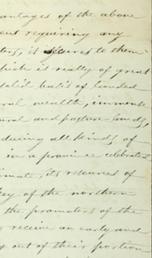 antages of the above
out requiring any
it to them
which is really of great
solid basis of landed
ral wealth, immense
ural and pasture lands,
ducing all kinds of
in a province celebrated
climate, its resources of
of the northern
the promoters of the
receive an early and
out of their portion